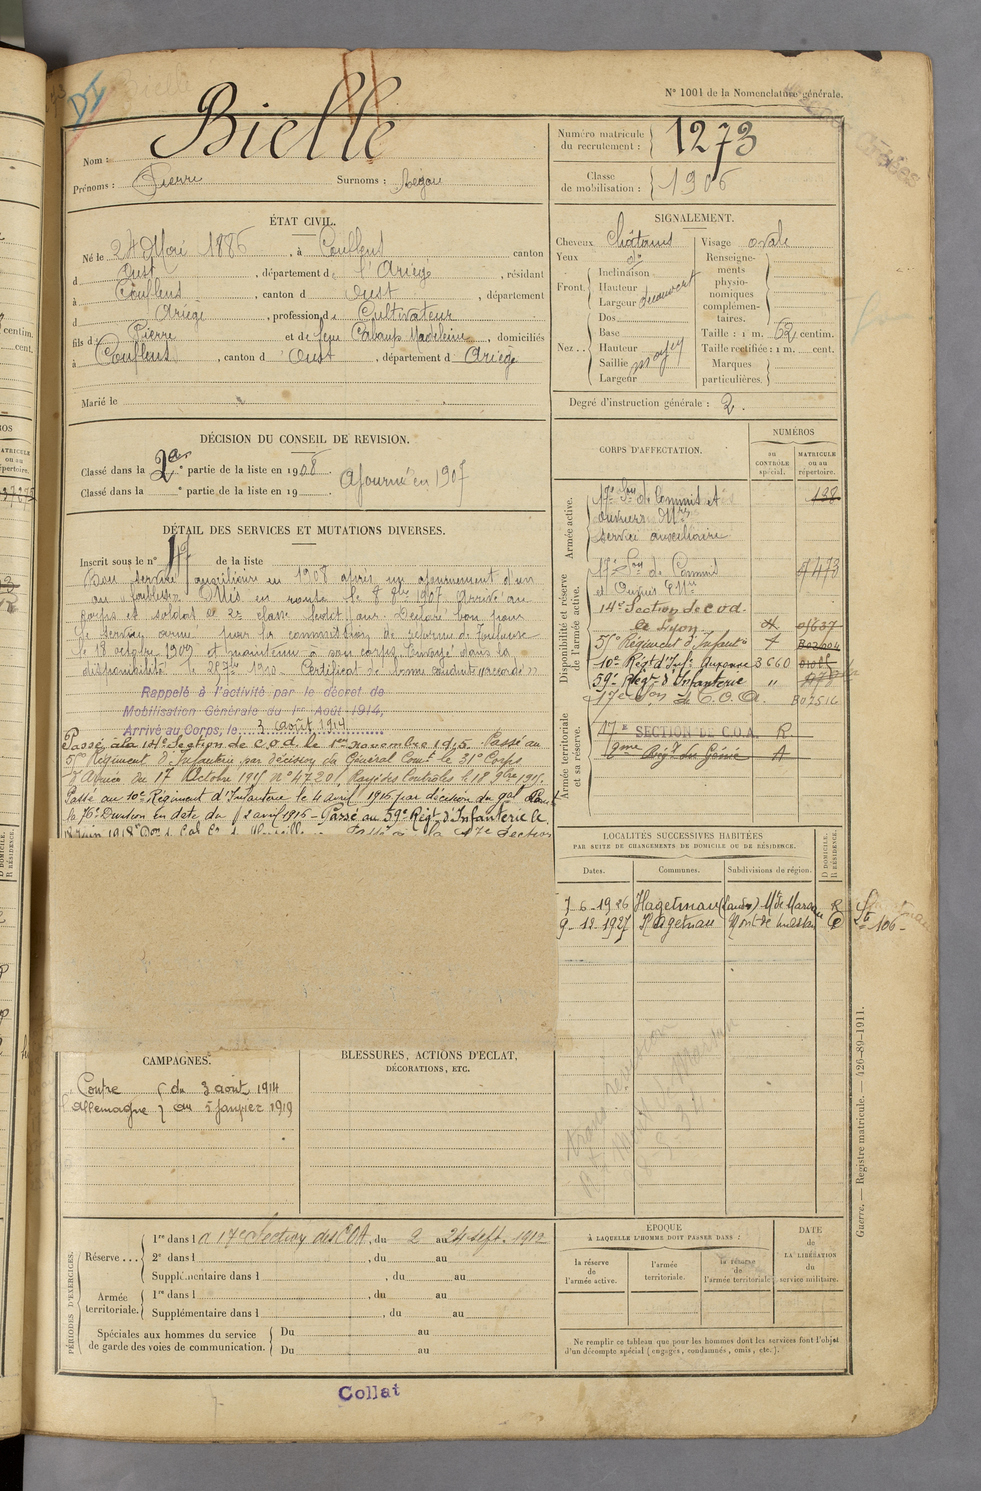 N° 1001 de la Nomenclature générale.
Bielle
Nom :
Prénoms : Pierre Surnoms : Begou
Numéro matricule du recrutement : 1273
Classe de mobilisation : 1906
ÉTAT CIVIL.
Né le 24 Mai 1886, à Couflens canton
d Oust, département d l'Ariège, résidant
à Couflens, canton d Oust, département
d Ariège, profession d Cultivateur
fils d Pierre et de feue Cabaup Madeleine, domiciliés
à Couflens, canton d Oust, département d Ariège
Marié le
SIGNALEMENT.
Cheveux châtains Visage ovale
Yeux do
Front. Inclinaison
Hauteur
Largeur découvert
Nez.. Dos
Base
Hauteur
Saillie moyen
Largeur
Renseignements physionomiques complémentaires.
Taille : 1 m. 62 centim.
Taille rectifiée : 1 m. cent.
Marques particulières.
Degré d'instruction générale : 2.
DÉCISION DU CONSEIL DE REVISION.
Classé dans la 2e partie de la liste en 1908. Ajourné en 1907
Classé dans la ° partie de la liste en 19
DÉTAIL DES SERVICES ET MUTATIONS DIVERSES.
Inscrit sous le n° 17 de la liste
Bon service auxiliaire en 1908 après un ajournement d'un
an "faiblesse" Mis en route le 8 8bre 1907 Arrivé au
corps et soldat de 2e classe ledit jour. Déclaré bon pour
le service armé par la commission de réforme de Toulouse
le 18 octobre 1909 et maintenu à son corps. Envoyé dans la
disponibilité le 25 7bre 1910. Certificat de bonne conduite "accordé"
Rappelé à l'activité par le décret de
Mobilisation Générale du 1er Août 1914,
Arrivé au Corps, le 3 août 1914
Passé à la 14e Section de C.O.A. le 1er novembre 1915. Passé au
5e Régiment d'Infanterie par décision du Général Comt le 31e Corps
d'Armée du 17 Octobre 1915 n° 4720/ Rayé des Contrôles le 18 9bre 1915.
Passé au 10e Régiment d'Infanterie le 4 avril 1916 par décision du gal Comt
la 76e Division en date du 2 avril 1916 - Passé au 59e Régt d'Infanterie le
CORPS D'AFFECTATION.
NUMÉROS
au CONTRÔLE spécial.
MATRICULE ou au répertoire.
Armée active.
17e Son de Commis et
ouvriers Mres
Service auxiliaire
198
Disponibilité et réserve de l'armée active.
17e Son de Commis
et Ouvriers Mres
14e Section de C.O.A.
de Lyon
5e Régiment d'Infante
10e Régt d'Inf. Auxonne 3660
59e Régt d'Infanterie "
17e Son de C.O.A. B07516
Armée territoriale et sa réserve.
17e SECTION DE C.O.A. R
2ème Régt du Génie A
LOCALITÉS SUCCESSIVES HABITÉES
PAR SUITE DE CHANGEMENTS DE DOMICILE OU DE RÉSIDENCE.
Dates. Communes. Subdivisions de région. D DOMICILE. R RÉSIDENCE.
7-6-1926 Hagetmau (Landes) Mt de Marsan R
9-12-1927 Hagetmau Mont de Marsan D
CAMPAGNES.
Contre l'Allemagne du 3 août 1914
au 5 janvier 1919
BLESSURES, ACTIONS D'ÉCLAT,
DÉCORATIONS, ETC.
PÉRIODES D'EXERCICES.
Réserve... 1re dans l a 17e Section des COA, du 2 au 24 sept. 1912
2e dans l , du au
Supplémentaire dans l , du au
Armée territoriale. 1re dans l , du au
Supplémentaire dans l , du au
Spéciales aux hommes du service de garde des voies de communication. Du au
Du au
EPOQUE
À LAQUELLE L'HOMME DOIT PASSER DANS :
la réserve de l'armée active.
l'armée territoriale.
la réserve de l'armée territoriale
DATE de LA LIBÉRATION du service militaire.
Ne remplir ce tableau que pour les hommes dont les services font l'objet
d'un décompte spécial (engagés, condamnés, omis, etc.).
Guerre. — Registre matricule. — 426-89-1911.
Collat